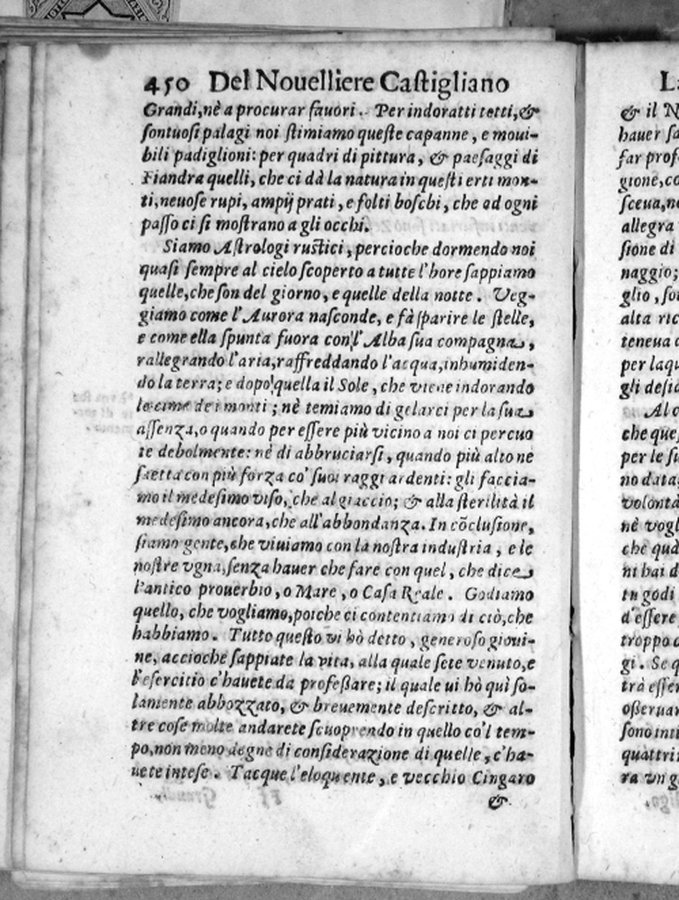 450 Del Nouelliere Castigliano
Grandi, nè a procurar fauori. Per indoratti tetti, &
sontuosi palagi noi stimiamo queste capanne, e moui-
bili padiglioni: per quadri di pittura, & paesaggi di
Fiandra quelli, che ci dà la natura in questi erti mon-
ti, neuose rupi, ampij prati, e folti boschi, che ad ogni
passo ci si mostrano a gli occhi.
Siamo Astrologi rustici, percioche dormendo noi
quasi sempre al cielo scoperto a tutte l'hore sappiamo
quelle, che son del giorno, e quelle della notte. Veg-
giamo come l'Aurora nasconde, e fà sparire le stelle,
e come ella spunta fuora con l'Alba sua compagna,
rallegrando l'aria, raffreddando l'acqua, inhumiden-
do la terra; e dopo quella il Sole, che viene indorando
le cime de i monti; nè temiamo di gelarci per la sua
assenza, o quando per essere più vicino a noi ci percuo
te debolmente: nè di abbruciarsi, quando più alto ne
saetta con più forza co' suoi raggi ardenti: gli faccia-
mo il medesimo viso, che al giaccio; & alla sterilità il
medesimo ancora, che all'abbondanza. In cõclusione,
siamo gente, che viuiamo con la nostra industria, e le
nostre vgna, senza hauer che fare con quel, che dice
l'antico prouerbio, o Mare, o Casa Reale. Godiamo
quello, che vogliamo, poiche ci contentiamo di ciò, che
habbiamo. Tutto questo vi hò detto, generoso gioui-
ne, accioche sappiate la vita, alla quale sete venuto, e
l'esercitio c'hauete da professare; il quale ui hò quì so-
lamente abbozzato, & breuemente descritto, & al-
tre cose molte andarete scuoprendo in quello co'l tem-
po, non meno degne di considerazione di quelle, c'ha-
uete intese. Tacque l'eloquente, e vecchio Cingaro
&
La
& il N
hauer sa
far prof
gione, co
sceua, ne
allegra
sione di
naggio;
glio, so
alta ric
teneua
per laqu
gli deside
Al c
che que
per le su
no data
volontà
nè vogl
chè quà
ni hai d
tu godi
d'essere
troppo
gi. Se q
trà esser
osseruar
sono inti
quattri
ra vn g